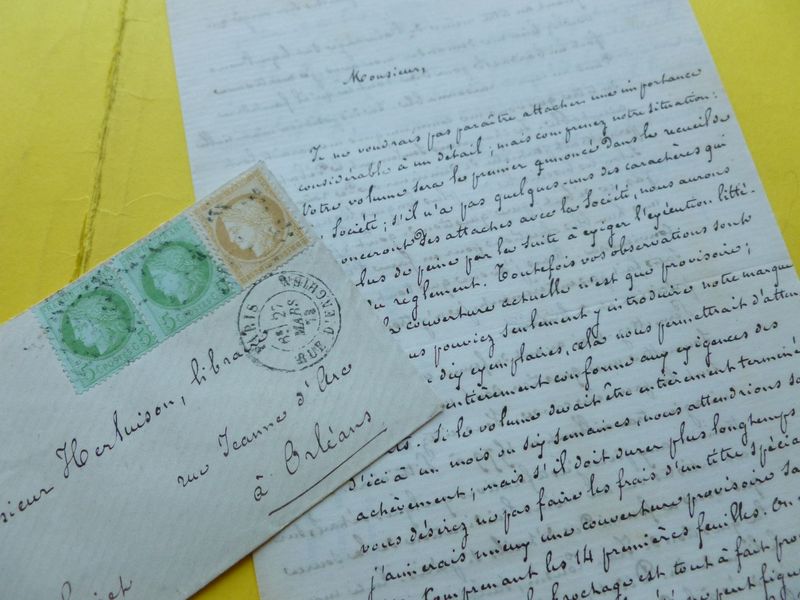 Monsieur,
Je ne voudrais pas paraître attacher une importance
considérable à un détail ; mais comprenez notre situation :
Votre volume sera le premier annoncé dans le recueil de
Société ; s'il n'a pas quelques-uns des caractères qui
des attaches avec la Société, nous aurons
plus de peine par la suite à exiger l'exécution litté-
du réglement. Toutefois vos observations sont
couverture actuelle n'est que provisoire ;
pouviez seulement y introduire notre marque
dix exemplaires, cela nous permettrait d'atten-
entièrement conforme aux exigences des
Si le volume devait être entièrement terminé
d'ici à un mois ou six semaines, nous attendrions so
achèvement ; mais s'il doit durer plus longtemps
vous désirez ne pas faire les frais d'un titre spécia
j'aimerais mieux une couverture provisoire sa
comprenant les 14 premières feuilles. On
brochage est tout à fait pro
peut figu
PARIS
22
MARS
73
RUE D'ENGHIEN
5
5
sieur Herluison, libra
rue Jeanne d'Arc
à Orléans